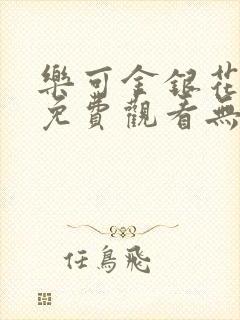 樂可金銀花
免費觀看無
任鳥飛